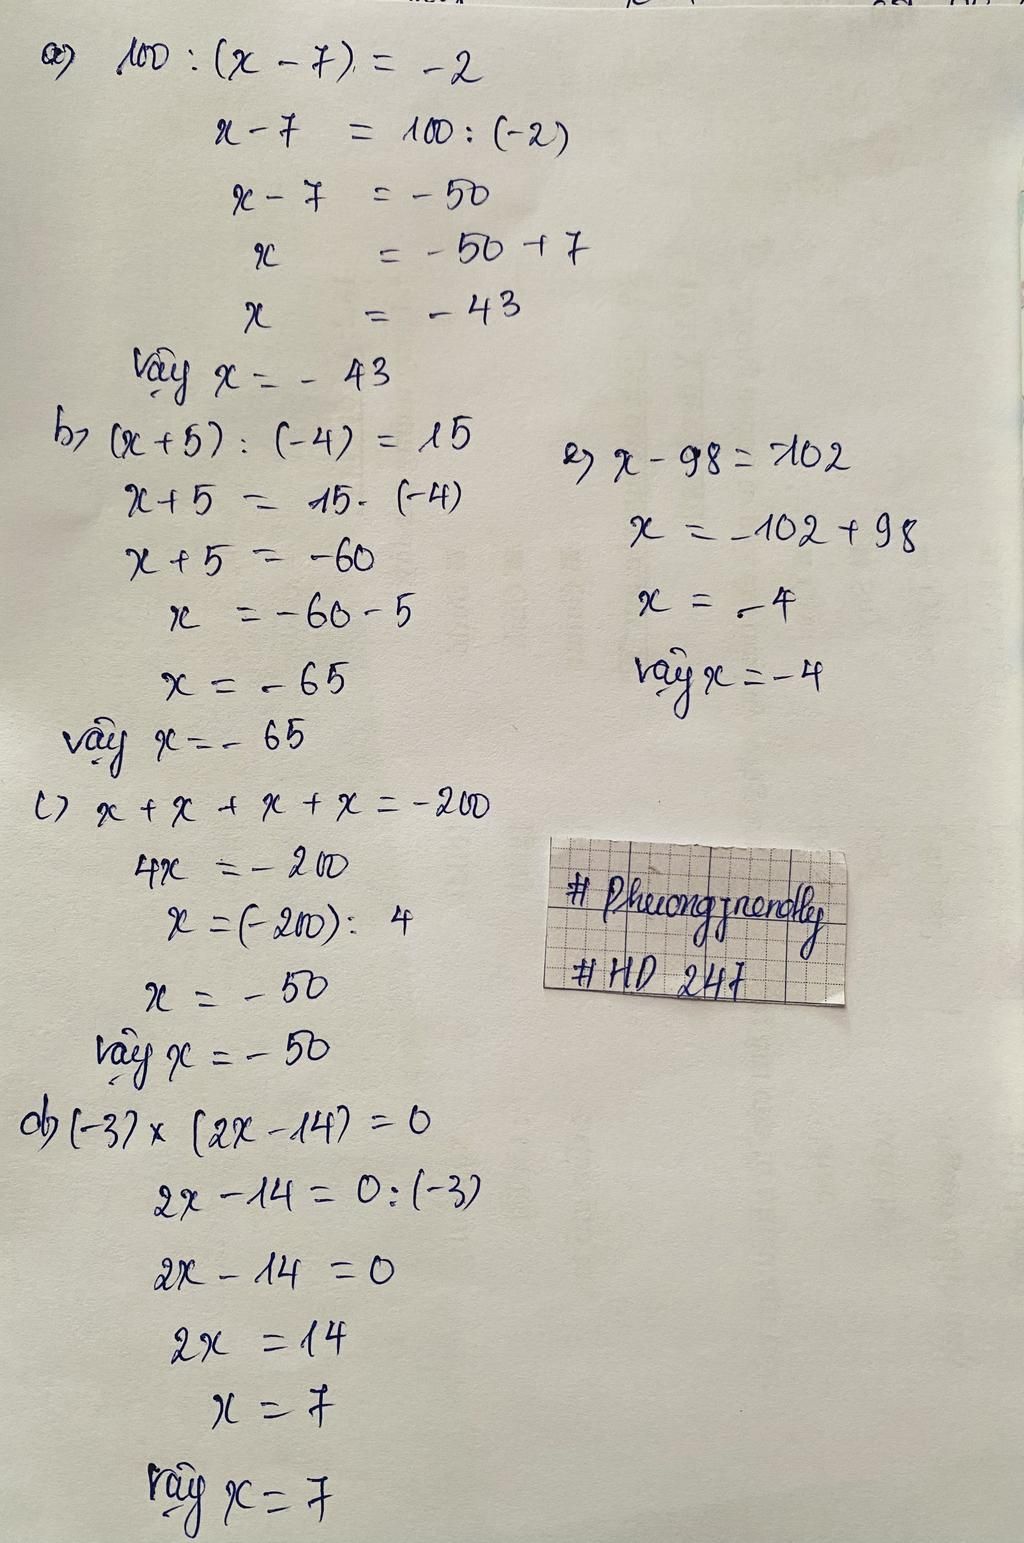 a) 100 : (x - 7) = -2
x - 7 = 100 : (-2)
x - 7 = - 50
x = - 50 + 7
x = - 43
Vậy x = - 43
b) (x + 5) : (-4) = 15
x + 5 = 15 . (-4)
x + 5 = -60
x = -60 - 5
x = - 65
vậy x = - 65
c) x + x + x + x = -200
4x = - 200
x = (-200) : 4
x = - 50
Vậy x = - 50
d) (-3) x (2x - 14) = 0
2x - 14 = 0 : (-3)
2x - 14 = 0
2x = 14
x = 7
Vậy x = 7
e) x - 98 = -102
x = -102 + 98
x = -4
Vậy x = -4
# Phuongfriendly
# HD 247